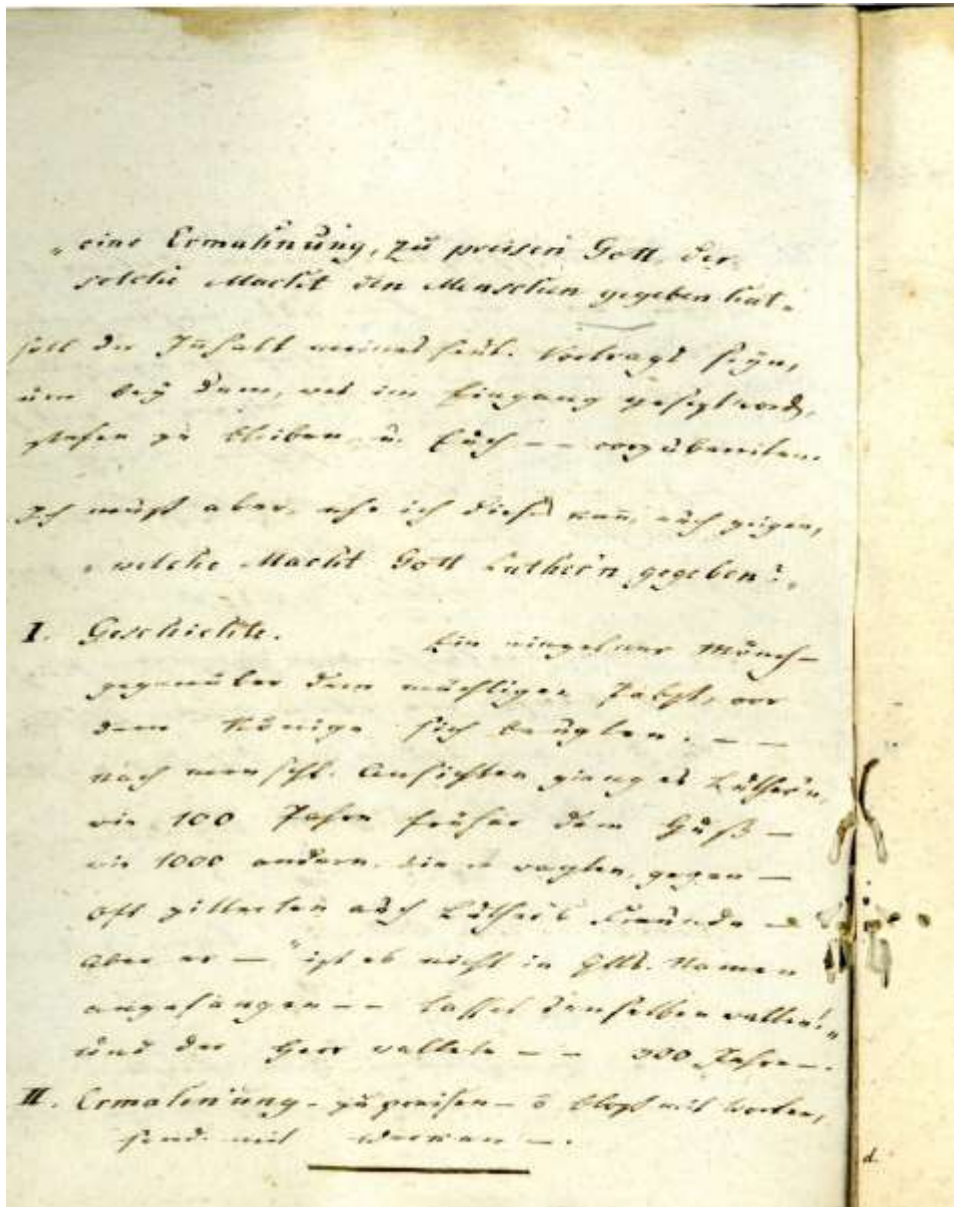 „eine Ermahnung, zu preisen Gott, der
solche Macht den Menschen gegeben hat„
soll der Inhalt meines heut. Vortrags seyn,
um bey dem, was im Eingang gesagt word,
stehen zu bleiben, u. Euch — — vorzubereiten.
Ich muß aber, ehe ich dieses kann, euch zeigen,
„welche Macht Gott Luthern gegeben?„
I. Geschichte. Ein einzelner Mönch —
gegenüber dem mächtigen Pabst, vor
dem Könige sich beugten. — —
nach menschl. Ansichten gieng es Luthern,
wie 100 Jahre früher dem Huß —
wie 1000 andern, die es wagten, gegen —
Oft zitterten auch Luthers Freunde —
Aber er — "ist es nicht in Gotts. Namen
angefangen — — lasset denselben walten!„
Und der Herr waltete — — 300 Jahre —.
II. Ermahnung — zu preisen — bloß mit Worten,
sond. mit Werken —.
d.